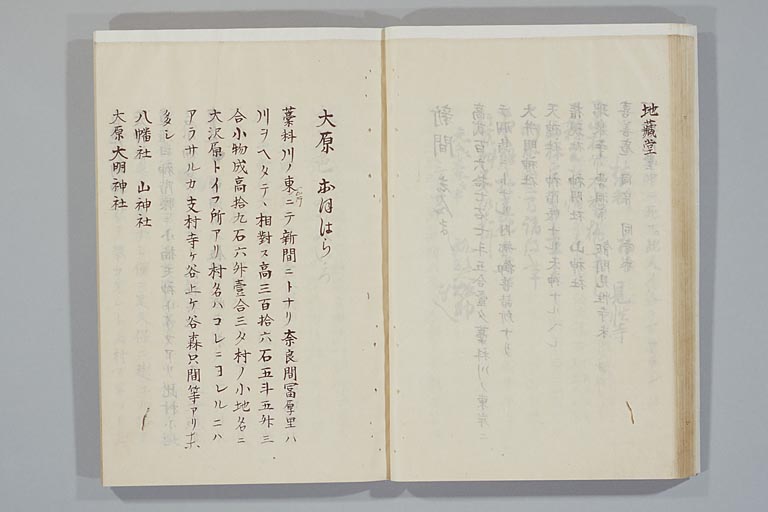 地藏堂
大原 おほはら
藁科川ノ東ニテ新間ニトナリ奈良間冨厚里ハ
川ヲヘタテヽ相對ス高三百拾六石五斗五升三
合小物成高拾九石六升壹合三夕村ノ小地名ニ
大沢原トイフ所アリ村名ハコレニヨレルニハ
アラサルカ支村寺ケ谷上ケ谷森只間等アリ茶
多シ
八幡社 山神社
大原大明神社